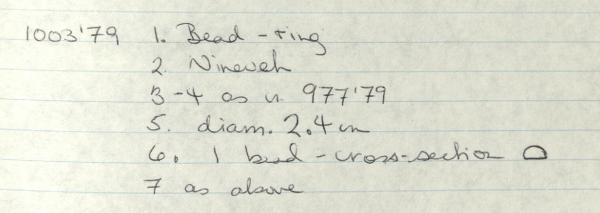 1003'79 1. Bead-ring
2. Nineveh
3-4 as in 977'79
5. diam. 2.4 cm
6. 1 bead - cross-section
7 as above